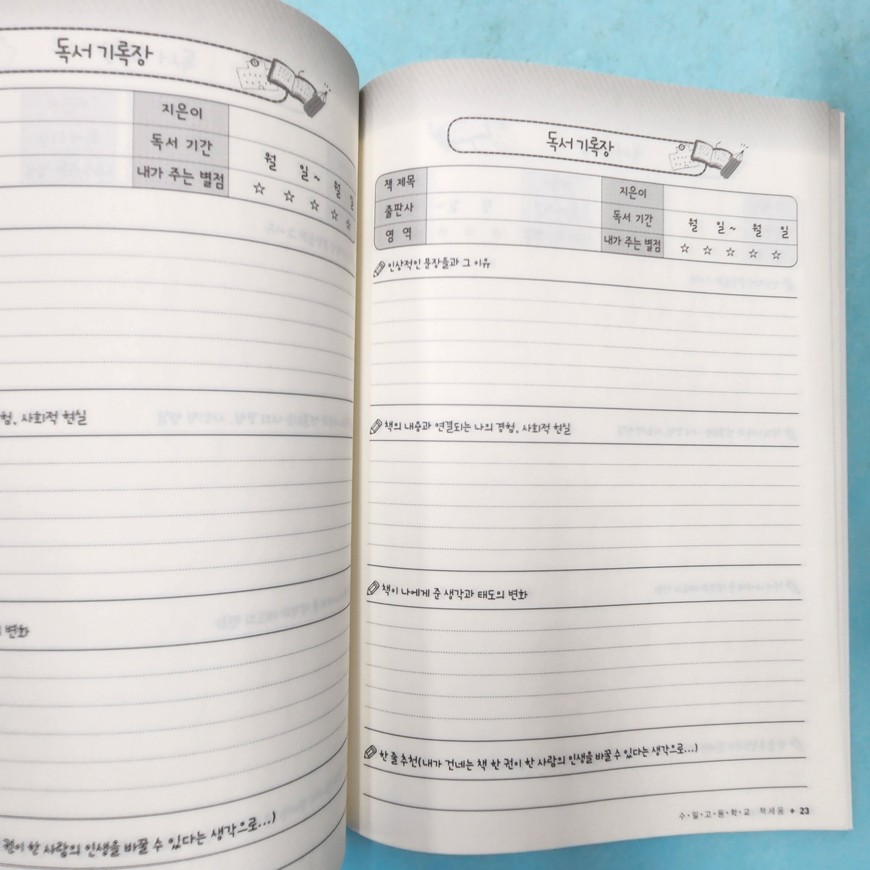 독서 기록장
지은이
독서 기간 월 일 ~ 월 일
내가 주는 별점 ☆ ☆ ☆ ☆ ☆
사회적 현실
변화
권이 한 사람의 인생을 바꿀 수 있다는 생각으로...)
독서 기록장
책 제목 지은이
출판사 독서 기간 월 일 ~ 월 일
영 역 내가 주는 별점 ☆ ☆ ☆ ☆ ☆
인상적인 문장들과 그 이유
책의 내용과 연결되는 나의 경험, 사회적 현실
책이 나에게 준 생각과 태도의 변화
한 줄 추천(내가 건네는 책 한 권이 한 사람의 인생을 바꿀 수 있다는 생각으로...)
수·일·고·등·학·교 책세움 + 23